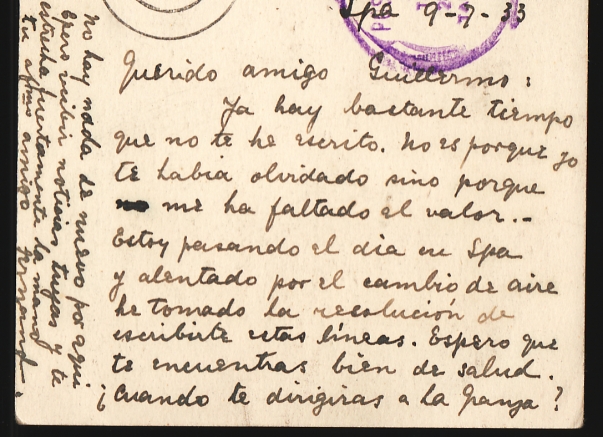 Spa 9-7-33
Querido amigo Guillermo:
Ya hay bastante tiempo
que no te he escrito. No es porque yo
te habia olvidado sino porque
me ha faltado el valor.-
Estoy pasando el dia en Spa
y alentado por el cambio de aire
he tomado la resolución de
escribirte estas líneas. Espero que
te encuentras bien de salud.
¿Cuando te dirigiras a la Granja?
No hay nada de nuevo por aqui
Espero recibir noticias tuyas y te
estrecha fuertemente la mano
tu afmo amigo Fernand.